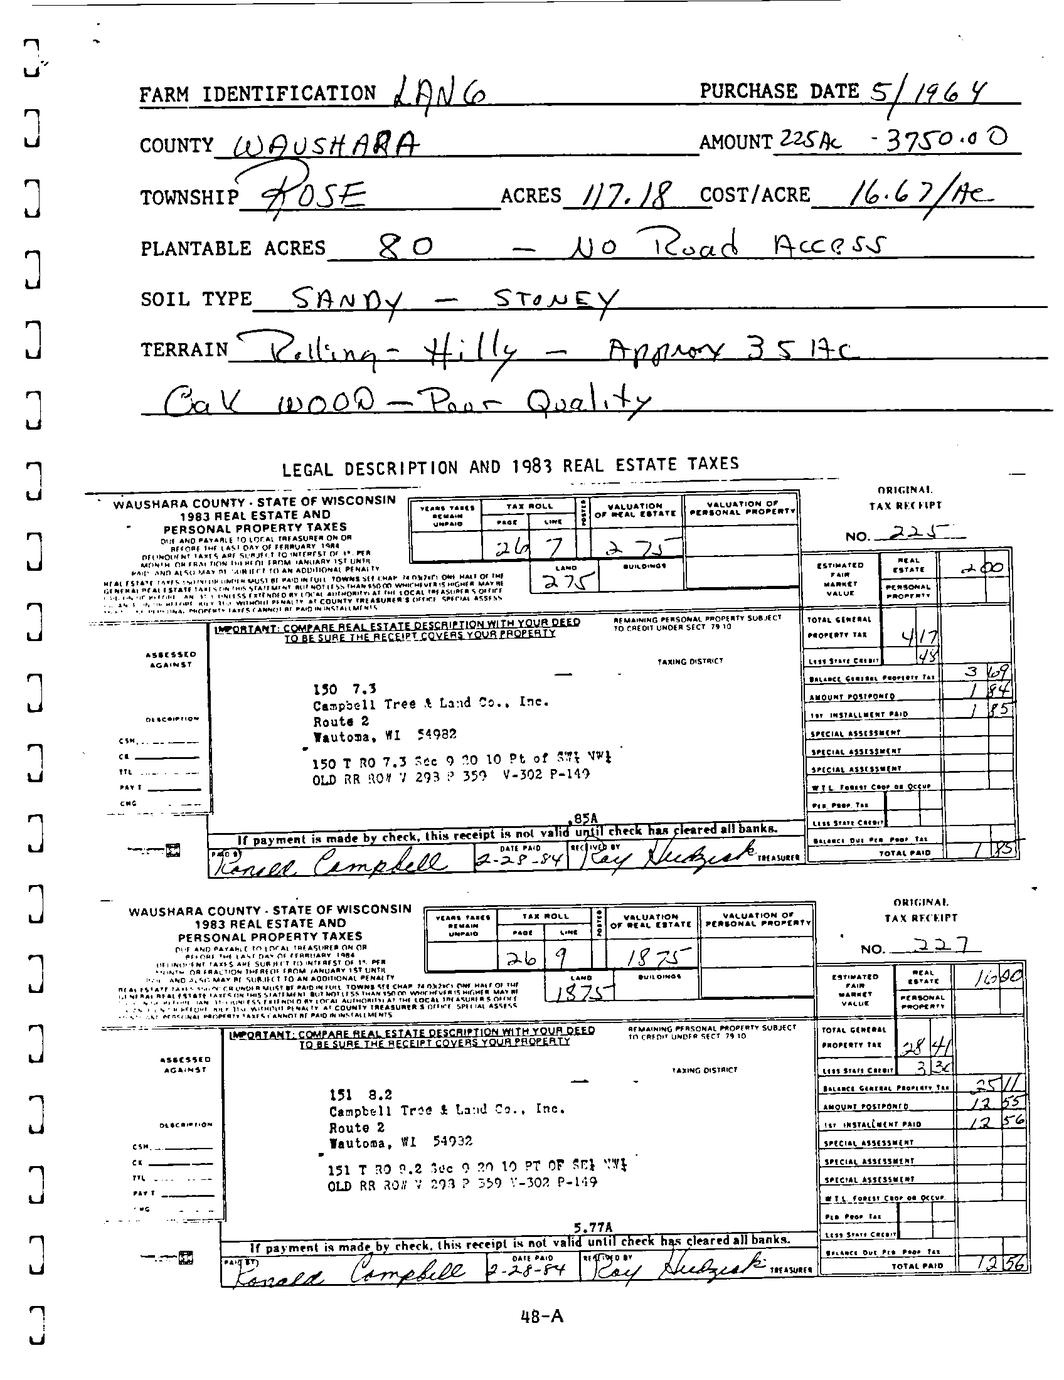 FARM IDENTIFICATION LANG PURCHASE DATE 5/1964
COUNTY WAUSHARA AMOUNT 225Ac -3750.00
TOWNSHIP ROSE ACRES 117.18 COST/ACRE 16.67/Ac
PLANTABLE ACRES 80 - NO Road Access
SOIL TYPE SANDY - STONEY
TERRAIN Rolling - Hilly - Approx 35 Ac
Oak WOOD - Poor Quality
LEGAL DESCRIPTION AND 1983 REAL ESTATE TAXES
WAUSHARA COUNTY - STATE OF WISCONSIN
1983 REAL ESTATE AND
PERSONAL PROPERTY TAXES
DUE AND PAYABLE TO LOCAL TREASURER ON OR
BEFORE THE LAST DAY OF FEBRUARY 1984
DELINQUENT TAXES ARE SUBJECT TO INTEREST OF 1% PER
MONTH OR FRACTION THEREOF FROM JANUARY 1ST UNTIL
PAID AND ALSO MAY BE SUBJECT TO AN ADDITIONAL PENALTY
YEARS TAXES REMAIN UNPAID
TAX ROLL
PAGE LINE
26 7
POSTED
VALUATION OF REAL ESTATE
275
LAND BUILDINGS
275
VALUATION OF PERSONAL PROPERTY
ORIGINAL
TAX RECEIPT
NO. 225
IMPORTANT: COMPARE REAL ESTATE DESCRIPTION WITH YOUR DEED
TO BE SURE THE RECEIPT COVERS YOUR PROPERTY
REMAINING PERSONAL PROPERTY SUBJECT
TO CREDIT UNDER SECT 79 10
ASSESSED
AGAINST
TAXING DISTRICT
150 7.3
Campbell Tree & Land Co., Inc.
Route 2
Wautoma, WI 54982
DESCRIPTION
CSH.
CK
TTL
PAY T
CHG
150 T RO 7.3 Sec 9 20 10 Pt of SW¼ NW¼
OLD RR ROW V 293 P 359 V-302 P-149
.85A
If payment is made by check, this receipt is not valid until check has cleared all banks.
PAID BY Ronald Campbell DATE PAID 2-28-84 RECEIVED BY Ray Hudziak TREASURER
ESTIMATED FAIR MARKET VALUE REAL ESTATE 200
PERSONAL PROPERTY
TOTAL GENERAL PROPERTY TAX 4 17
LESS STATE CREDIT 48
BALANCE GENERAL PROPERTY TAX 3 69
AMOUNT POSTPONED 1 84
1ST INSTALLMENT PAID 1 85
SPECIAL ASSESSMENT
SPECIAL ASSESSMENT
SPECIAL ASSESSMENT
W T L FOREST CROP OR OCCUP
PER PROP TAX
LESS STATE CREDIT
BALANCE DUE PER PROP TAX
TOTAL PAID 1 85
WAUSHARA COUNTY - STATE OF WISCONSIN
1983 REAL ESTATE AND
PERSONAL PROPERTY TAXES
DUE AND PAYABLE TO LOCAL TREASURER ON OR
BEFORE THE LAST DAY OF FEBRUARY 1984
DELINQUENT TAXES ARE SUBJECT TO INTEREST OF 1% PER
MONTH OR FRACTION THEREOF FROM JANUARY 1ST UNTIL
PAID AND ALSO MAY BE SUBJECT TO AN ADDITIONAL PENALTY
YEARS TAXES REMAIN UNPAID
TAX ROLL
PAGE LINE
26 9
POSTED
VALUATION OF REAL ESTATE
1875
LAND BUILDINGS
1875
VALUATION OF PERSONAL PROPERTY
ORIGINAL
TAX RECEIPT
NO. 227
IMPORTANT: COMPARE REAL ESTATE DESCRIPTION WITH YOUR DEED
TO BE SURE THE RECEIPT COVERS YOUR PROPERTY
REMAINING PERSONAL PROPERTY SUBJECT
TO CREDIT UNDER SECT 79 10
ASSESSED
AGAINST
TAXING DISTRICT
151 8.2
Campbell Tree & Land Co., Inc.
Route 2
Wautoma, WI 54982
DESCRIPTION
CSH.
CK
TTL
PAY T
CHG
151 T RO 8.2 Sec 9 20 10 PT OF SE¼ NW¼
OLD RR ROW V 293 P 359 V-302 P-149
5.77A
If payment is made by check, this receipt is not valid until check has cleared all banks.
PAID BY Ronald Campbell DATE PAID 2-28-84 RECEIVED BY Ray Hudziak TREASURER
ESTIMATED FAIR MARKET VALUE REAL ESTATE 1600
PERSONAL PROPERTY
TOTAL GENERAL PROPERTY TAX 28 41
LESS STATE CREDIT 3 30
BALANCE GENERAL PROPERTY TAX 25 11
AMOUNT POSTPONED 12 55
1ST INSTALLMENT PAID 12 56
SPECIAL ASSESSMENT
SPECIAL ASSESSMENT
SPECIAL ASSESSMENT
W T L FOREST CROP OR OCCUP
PER PROP TAX
LESS STATE CREDIT
BALANCE DUE PER PROP TAX
TOTAL PAID 12 56
48-A